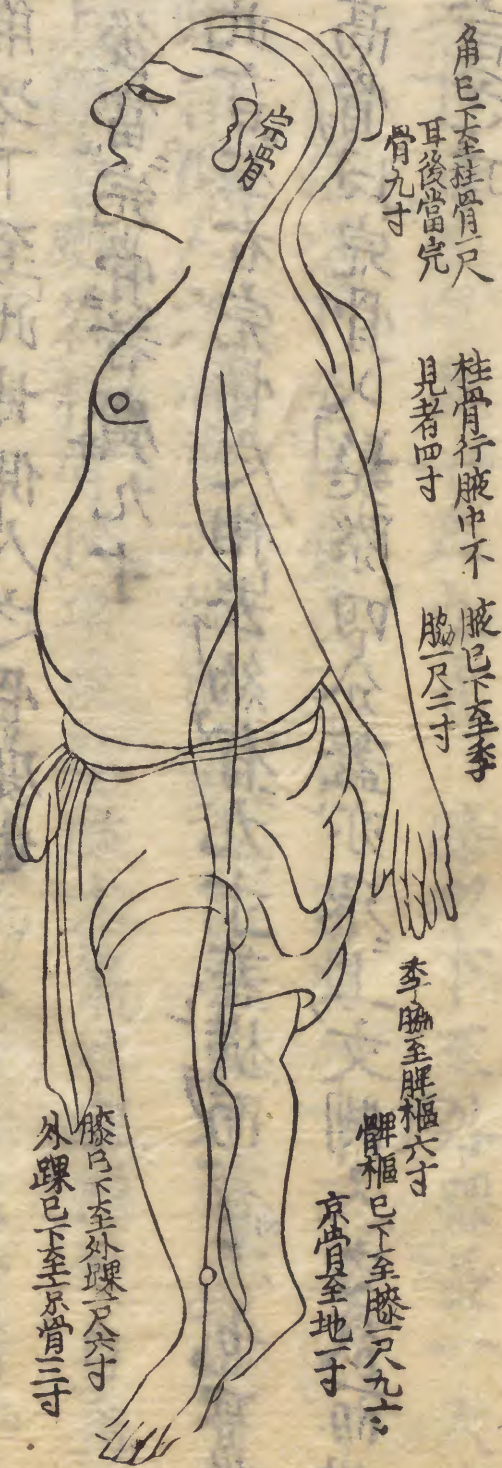 角巳下至柱骨一尺
耳後當完
骨九寸
完骨
柱骨行腋中不
見者四寸
腋巳下至季
脇一尺二寸
季脇至脾樞六寸
髀樞巳下至膝一尺九寸
京骨至地一寸
膝巳下至外踝一尺六寸
外踝巳下至京骨三寸